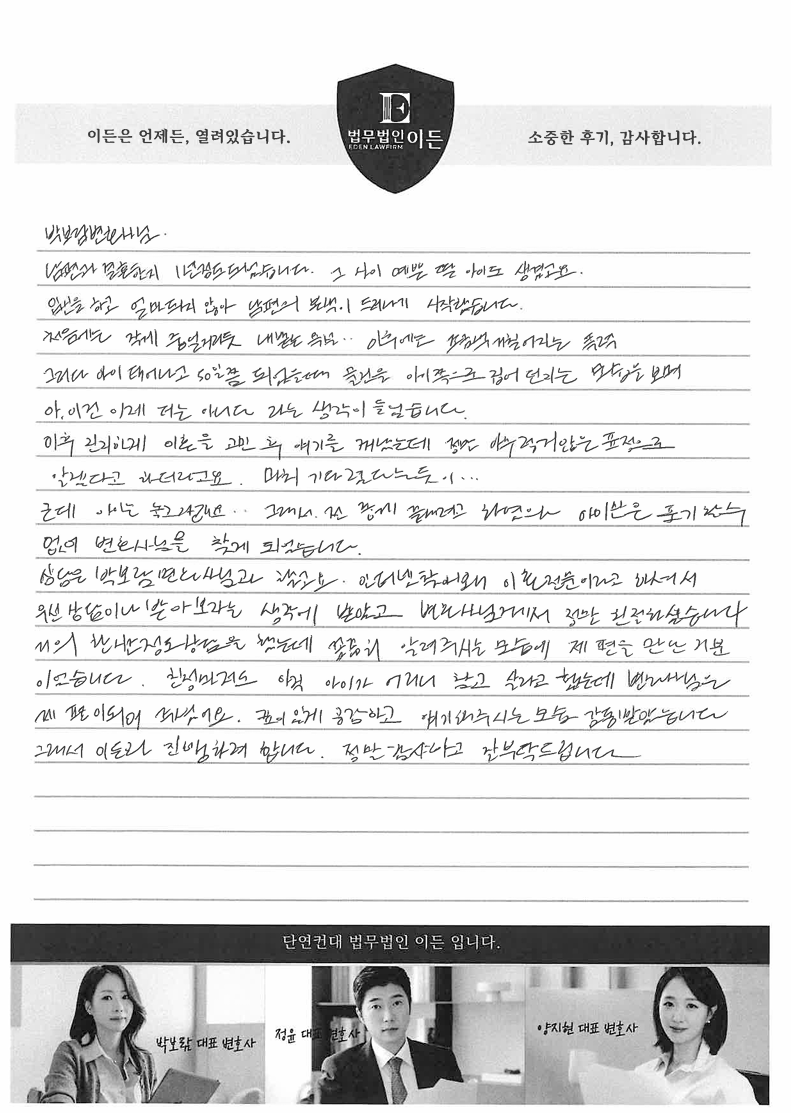 이든은 언제든, 열려있습니다.
법무법인 이든
EDEN LAWFIRM
소중한 후기, 감사합니다.
박보람변호사님.
남편과 결혼한지 1년정도되었습니다. 그 사이 예쁜 딸 아이도 생겼고요.
임신을 하고 얼마되지 않아 남편의 본색이 드러나기 시작했습니다.
처음에는 작게 중얼거리듯 내뱉는 욕설.. 이후에는 폭력
그러다 아이 태어나고 50일쯤 되었을때 물건을 아이쪽으로 집어 던지는 모습을 보며
아, 이건 이제 더는 아니다 라는 생각이 들었습니다.
이후 진지하게 이혼을 고민 후 얘기를 꺼냈는데 정말 아무렇지않은 표정으로
알겠다고 하더라고요. 마치 기다렸다는듯이...
근데 아이는 놓고가래요.. 그래서 끝내려고 하였으나 아이만은 포기할수
없어 변호사님을 찾게 되었습니다.
상담은 박보람변호사님과 했고요. 인터넷 찾아보니 이혼전문이라고 하셔서
우선 상담이나 받아보자는 생각에 받았고 변호사님께서 정말 친절하셨습니다
거의 한시간정도상담을 했는데 꼼꼼히 알려주시는 모습에 제 편을 만난 기분
이었습니다. 친정마저도 아직 아이가 어리니 참고 살라고 했는데 변호사님은
제 편이되어 주셨어요. 끊임없이 공감하고 얘기해주시는 모습 감동받았습니다
그래서 이든과 진행하려 합니다. 정말 감사하고 잘부탁드립니다
단연컨대 법무법인 이든 입니다.
박보람 대표 변호사
정윤 대표 변호사
양지현 대표 변호사